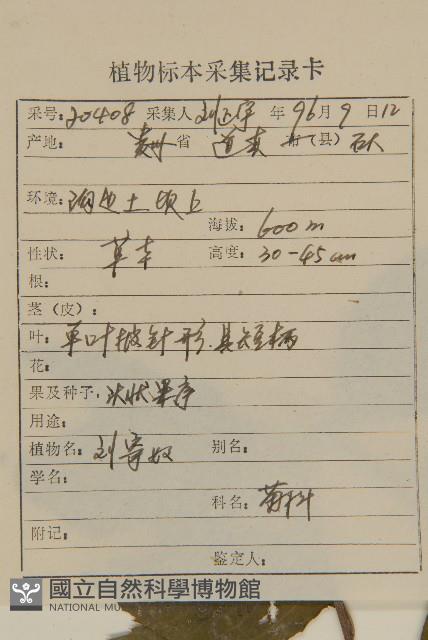 植物标本采集记录卡
采号: 20408 采集人 刘正宇 年 96月 9 日12
产地: 贵州 省 道真 市(县)
环境: 沟边土坝上
海拔: 600 m
性状: 草本 高度: 30-45 cm
根:
茎(皮):
叶: 单叶披针形.具短柄
花:
果及种子: 状果序
用途:
植物名: 刘寄奴 别名:
学名:
科名: 菊科
附记:
鉴定人:
國立自然科學博物館
NATIONAL MU